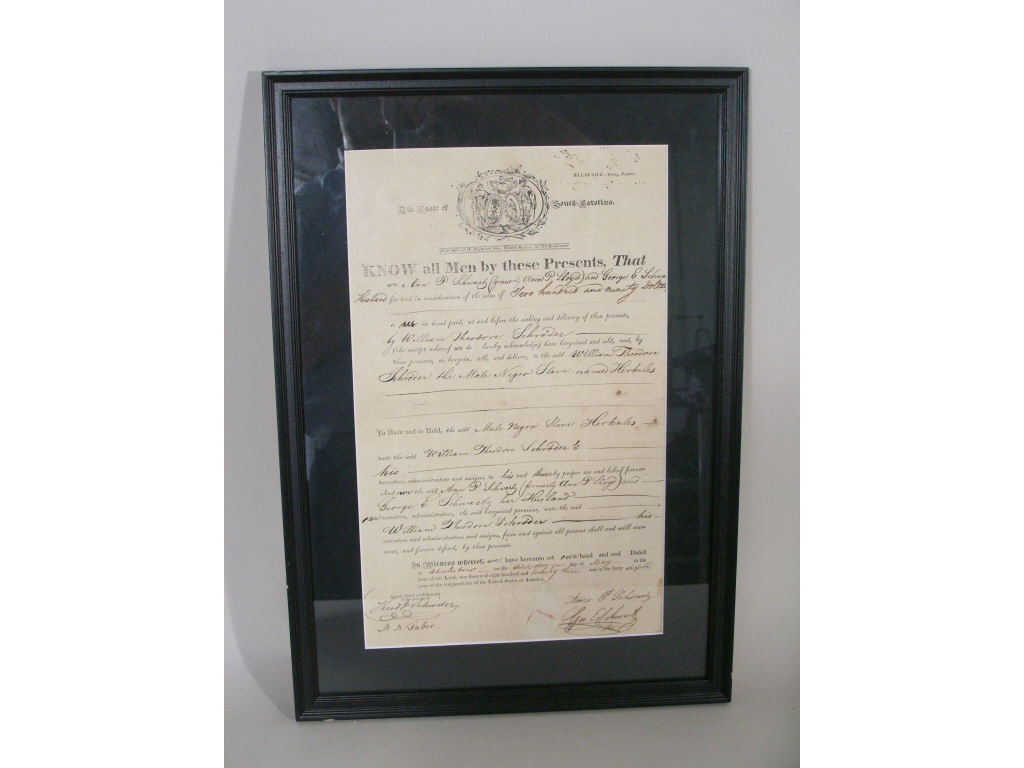 BILL OF SALE.
The State of South-Carolina.
KNOW all Men by these Presents, That
we Ann P Schwartz (formerly Ann P. Lloyd) and George E Schwa
Husband for and in consideration of the sum of Two hundred and ninety Dollars
to us in hand paid, at and before the sealing and delivery of these presents,
by William Theodore Schröder
(the receipt whereof we do hereby acknowledge) have bargained and sold, and, by
these presents, do bargain, sell, and deliver, to the said William Theodore
Schröder the Male Negro Slave named Herkules
To Have and to Hold, the said Male Negro Slave Herkules
unto the said William Theodore Schröder &
his
executors, administrators and assigns, to his and their only proper use and behoof forever
And we the said Ann P. Schwartz (formerly Ann P Lloyd) and
George E Schwartz her Husband
our executors, administrators, the said bargained premises, unto the said
William Theodore Schröder his
executors and administrators and assigns, from and against all persons shall and will war-
rant, and forever defend, by these presents
In Witness whereof, we have hereunto set our hand and seal Dated
at Charleston on the day of May in the
year of our Lord, one thousand eight hundred and and in the forty sixth
year of the independence of the United States of America.
Schröder
Ann P. Schwartz
M M Faber
Geo E Schwartz